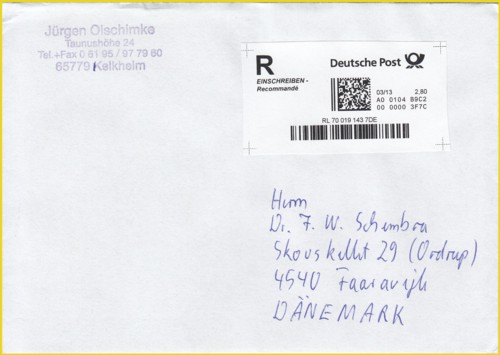 Jürgen Olschimke
Taunushöhe 24
Tel.+Fax 0 61 95 / 97 79 60
65779 Kelkheim
R
Deutsche Post
EINSCHREIBEN -
Recommandé
03/13 2,80
A0 0104 B9C2
00 0000 3F7C
RL 70 019 143 7DE
Herrn
Dr. F. W. Schembra
Skouskellet 29 (Ordrup)
4540 Faarevijle
DÄNEMARK